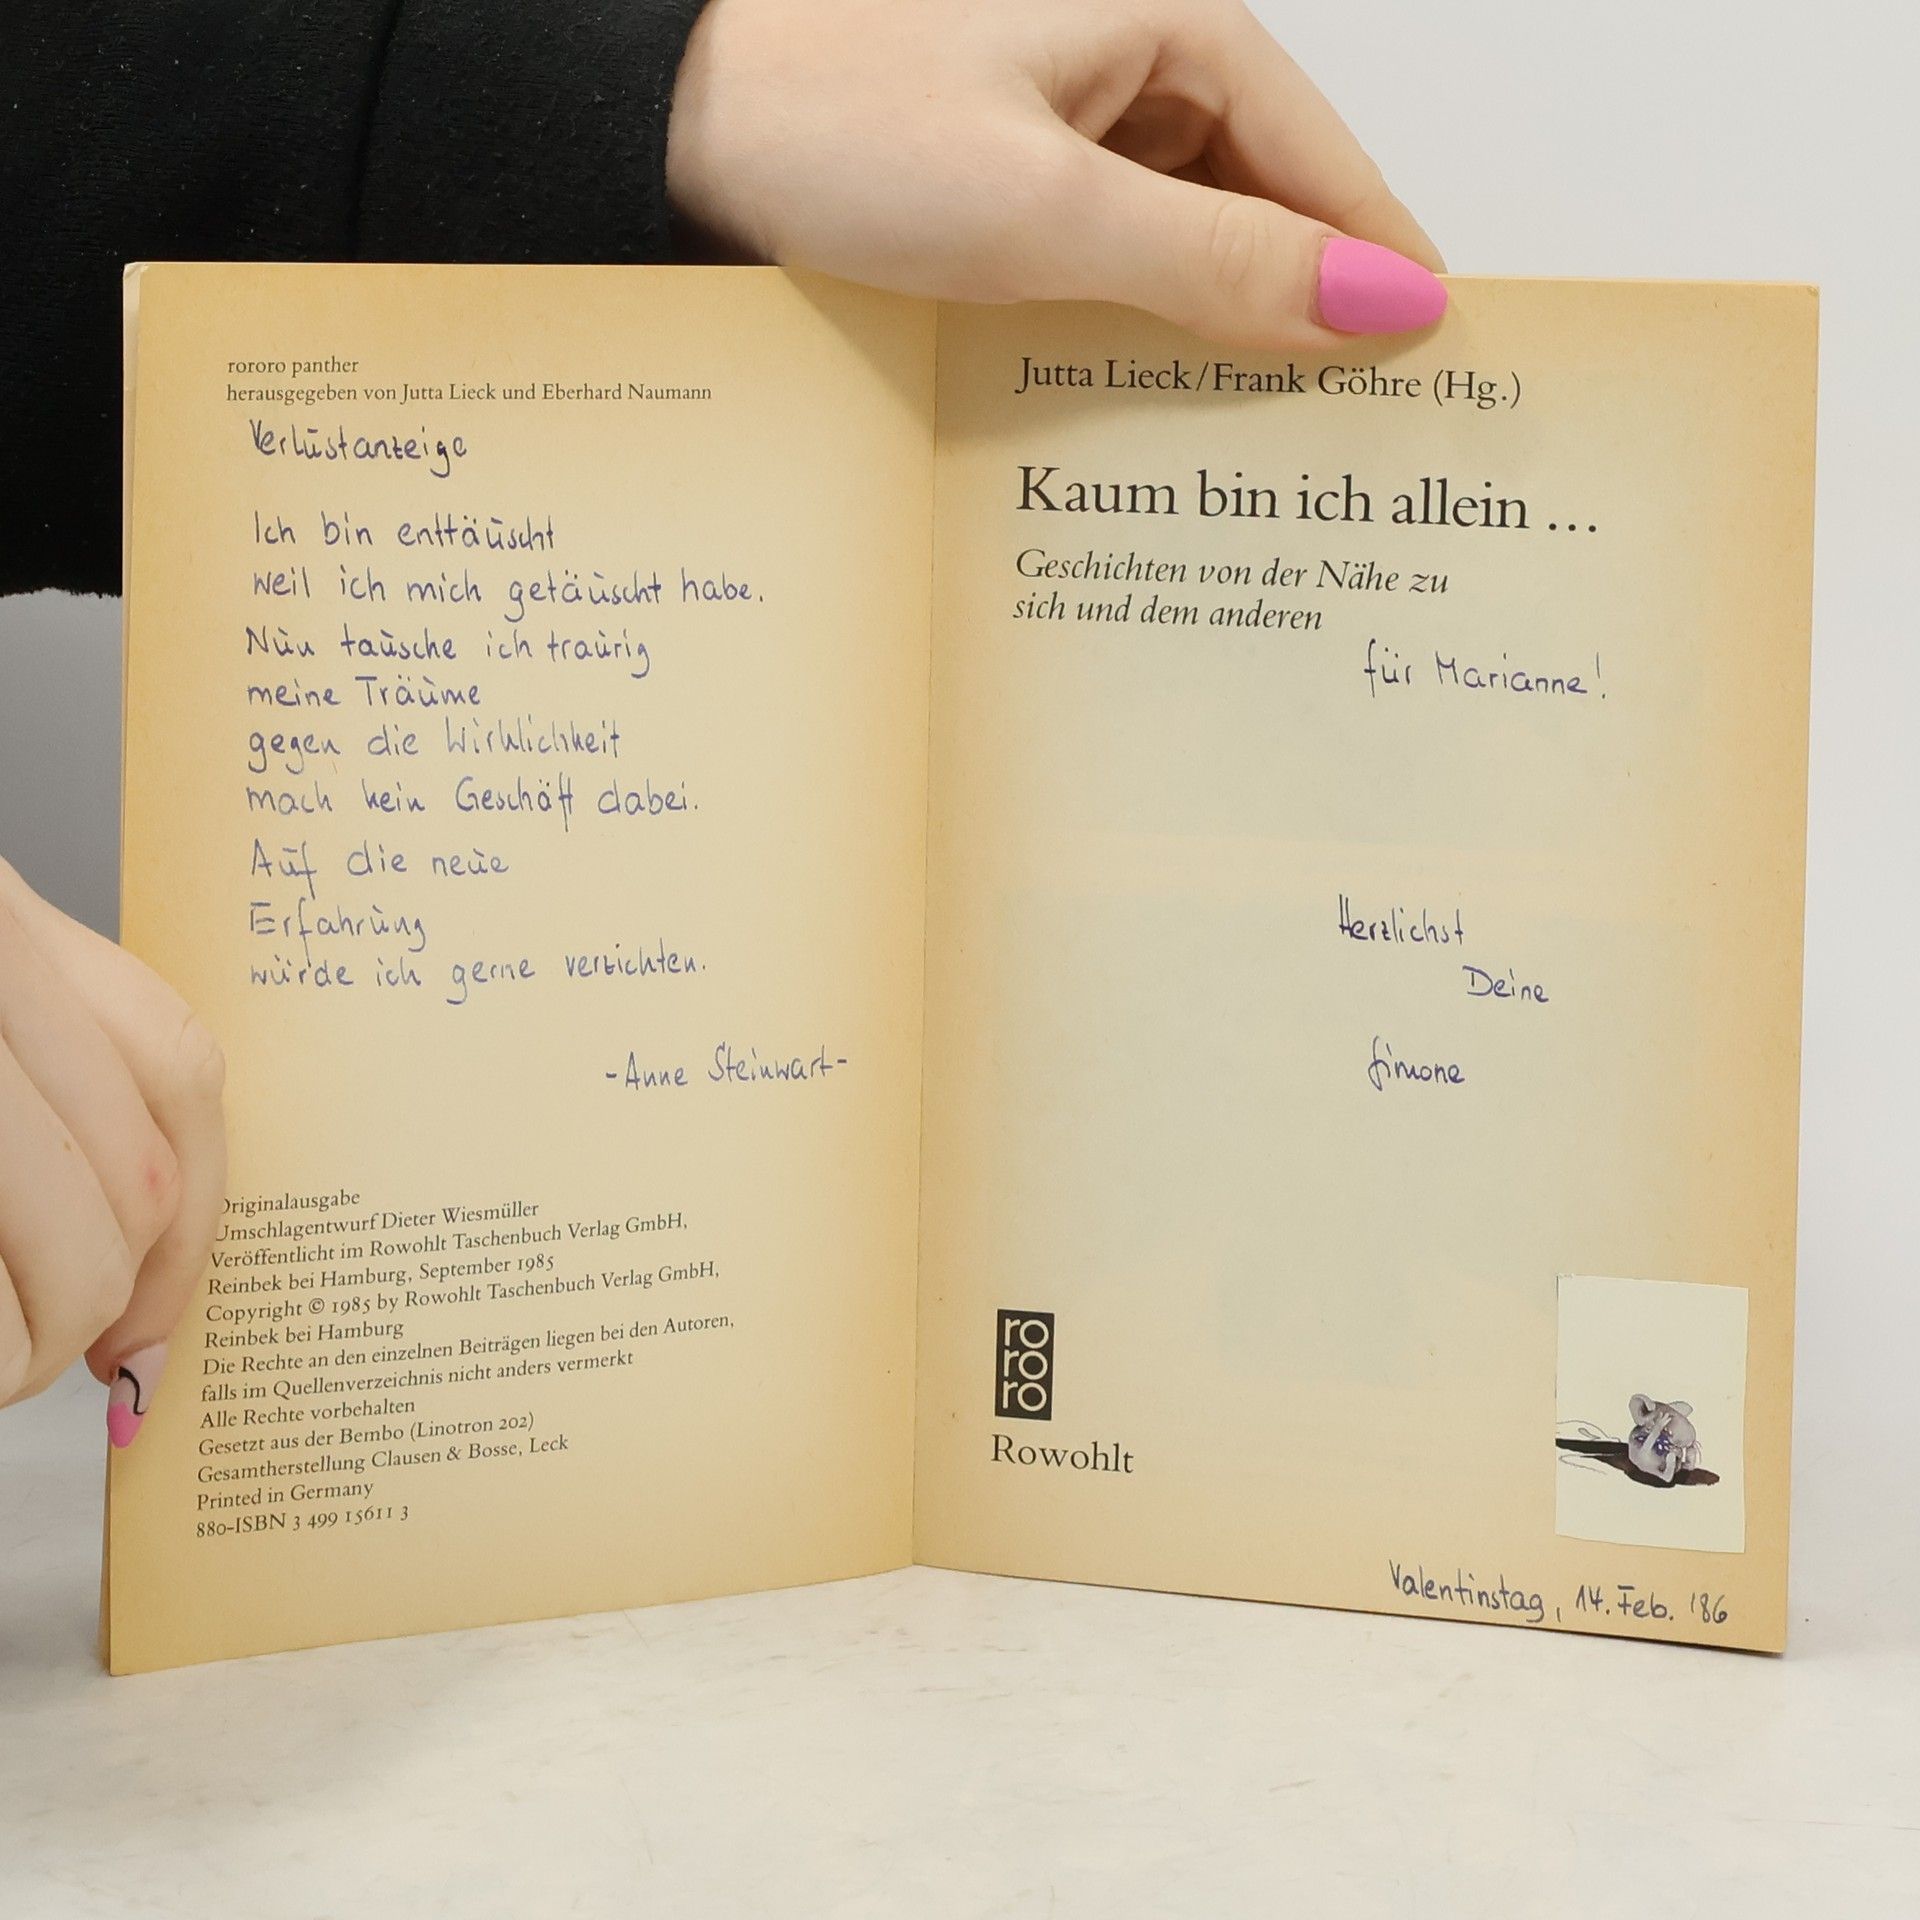 rororo panther
herausgegeben von Jutta Lieck und Eberhard Naumann
Verlustanzeige
Ich bin enttäuscht
weil ich mich getäuscht habe.
Nun tausche ich traurig
meine Träume
gegen die Wirklichkeit
mach kein Geschäft dabei.
Auf die neue
Erfahrung
würde ich gerne verzichten.
-Anne Steinwart-
Originalausgabe
Umschlagentwurf Dieter Wiesmüller
Veröffentlicht im Rowohlt Taschenbuch Verlag GmbH,
Reinbek bei Hamburg, September 1985
Copyright © 1985 by Rowohlt Taschenbuch Verlag GmbH,
Reinbek bei Hamburg
Die Rechte an den einzelnen Beiträgen liegen bei den Autoren,
falls im Quellenverzeichnis nicht anders vermerkt
Alle Rechte vorbehalten
Gesetzt aus der Bembo (Linotron 202)
Gesamtherstellung Clausen & Bosse, Leck
Printed in Germany
880-ISBN 3 499 15611 3
Jutta Lieck/Frank Göhre (Hg.)
Kaum bin ich allein ...
Geschichten von der Nähe zu
sich und dem anderen
für Marianne!
Herzlichst
Deine
Simone
ro
ro
ro
Rowohlt
Valentinstag, 14. Feb. '86